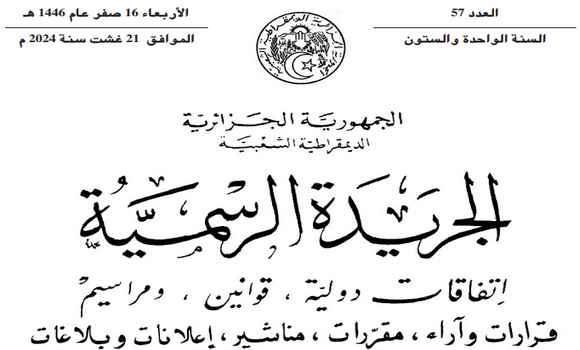 العدد 57
السنة الواحدة والستون
الأربعاء 16 صفر عام 1446 هـ
الموافق 21 غشت سنة 2024 م
الجمهورية الجزائرية
الديمقراطية الشعبية
الجريدة الرسمية
إتفاقات دولية ، قوانين ، ومراسيم
قرارات وآراء ، مقررات ، مناشير ، إعلانات وبلاغات